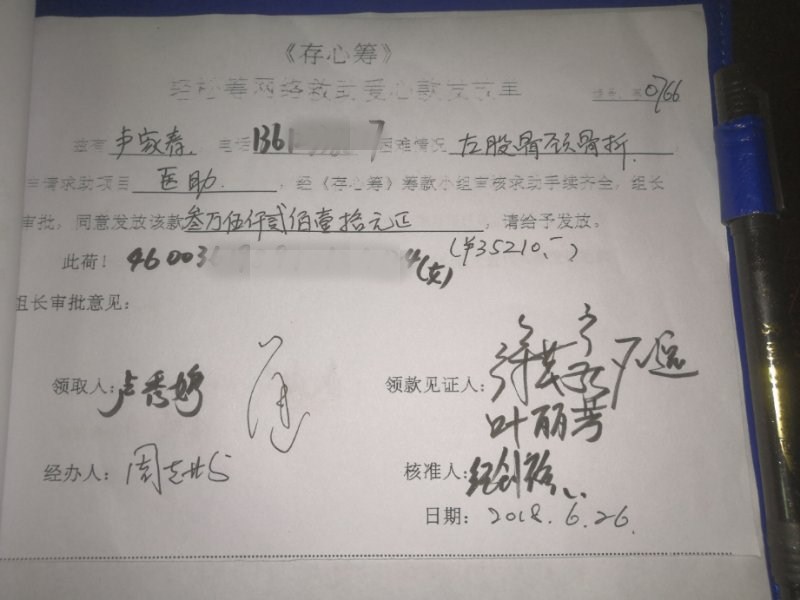 《存心筹》
经心筹网络救助爱心款发放单
0766
兹有 卢家春 电话 136 7 困难情况 左股骨颈骨折
申请求助项目 医助 ，经《存心筹》筹款小组审核求助手续齐全，组长
审批，同意发放该款叁万伍仟贰佰壹拾元正 ，请给予发放。
(¥35210.-)
此荷！ 46003 (女)
组长审批意见：
领取人： 领款见证人：
叶丽芳
经办人：周 核准人：
日期：2018.6.26.